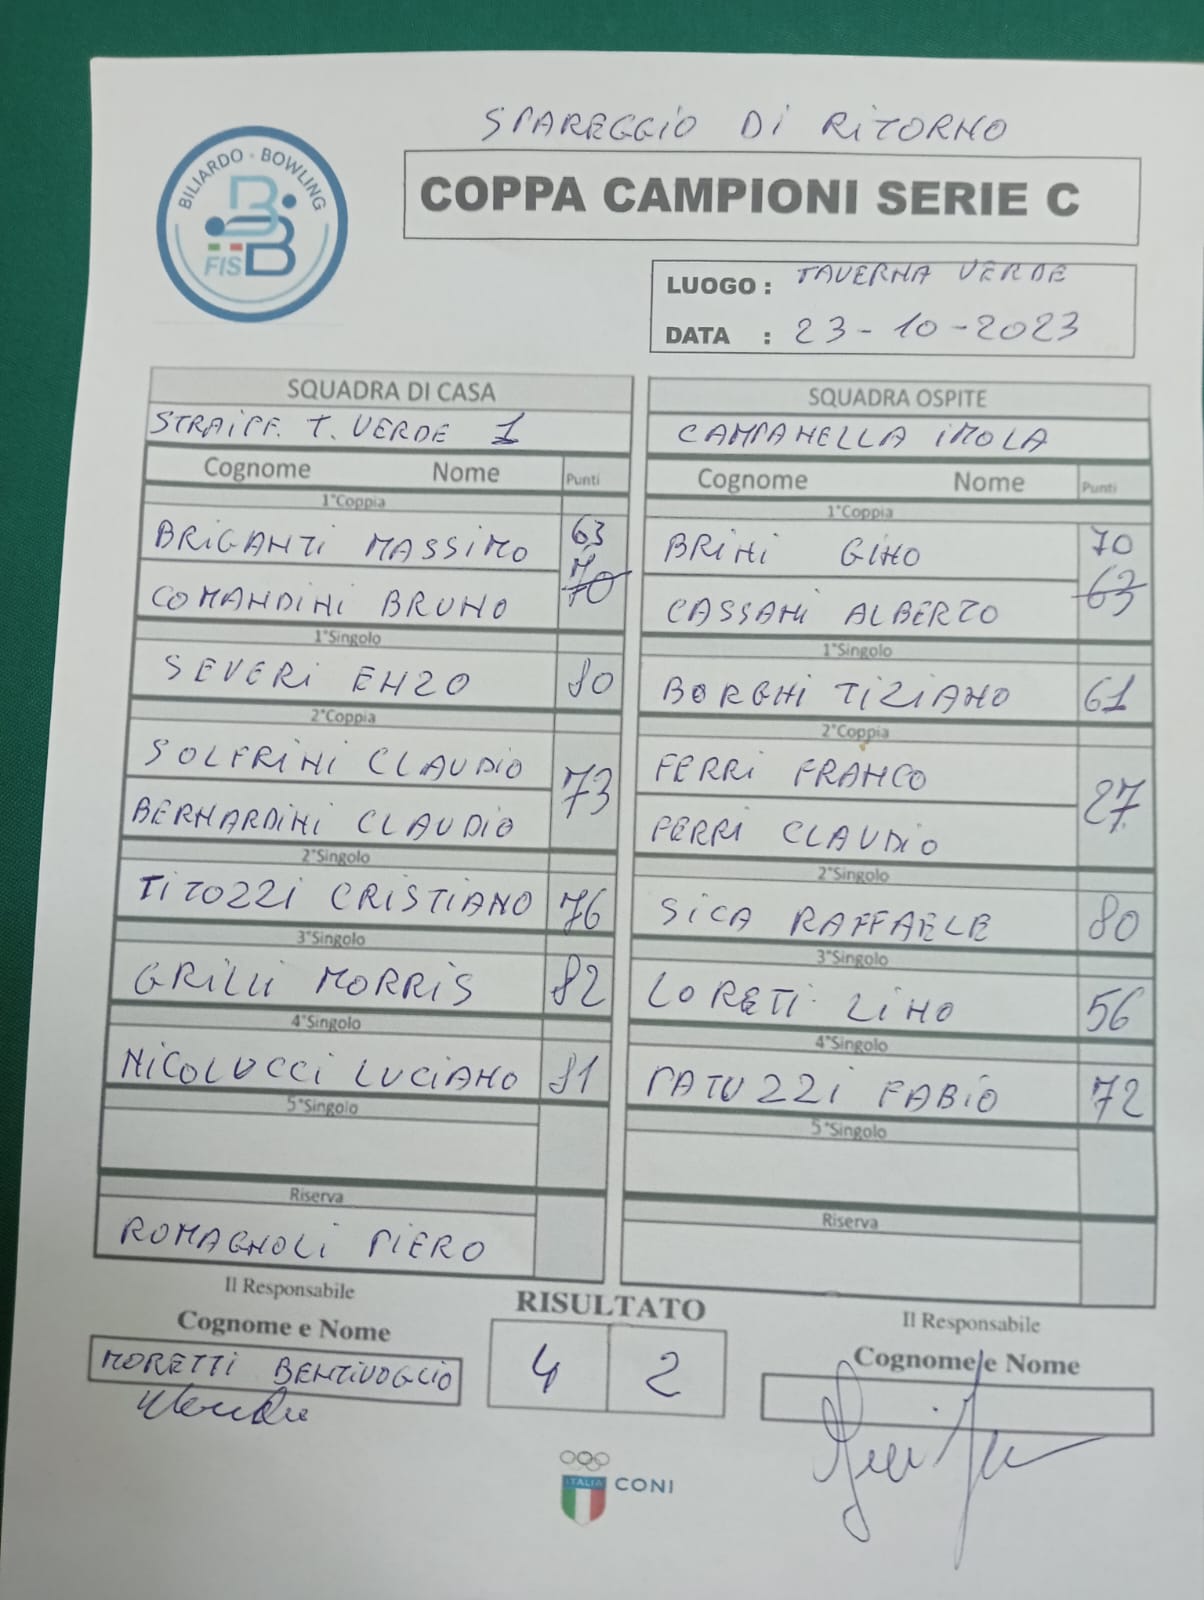 SPAREGGIO DI RITORNO
BILIARDO - BOWLING
FISBB
COPPA CAMPIONI SERIE C
LUOGO : TAVERNA VERDE
DATA : 23-10-2023
SQUADRA DI CASA
STRAIPF. T. VERDE 1
Cognome Nome Punti
1°Coppia
BRIGANTI MASSIMO 63
COMANDINI BRUNO 70
1°Singolo
SEVERI ENZO 80
2°Coppia
SOLFRINI CLAUDIO
73
BERNARDINI CLAUDIO
2°Singolo
TITOZZI CRISTIANO 76
3°Singolo
GRILLI MORRIS 82
4°Singolo
NICOLUCCI LUCIANO 81
5°Singolo
Riserva
ROMAGNOLI PIERO
SQUADRA OSPITE
CAMPANELLA IMOLA
Cognome Nome Punti
1°Coppia
BRINI GINO 70
CASSANI ALBERTO 63
1°Singolo
BORGHI TIZIANO 61
2°Coppia
FERRI FRANCO
27
FERRI CLAUDIO
2°Singolo
SICA RAFFAELE 80
3°Singolo
LORETI LINO 56
4°Singolo
PATUZZI FABIO 72
5°Singolo
Riserva
Il Responsabile
Cognome e Nome
MORETTI BENTIVOGLIO
RISULTATO
4 2
Il Responsabile
Cognome e Nome
ITALIA
CONI